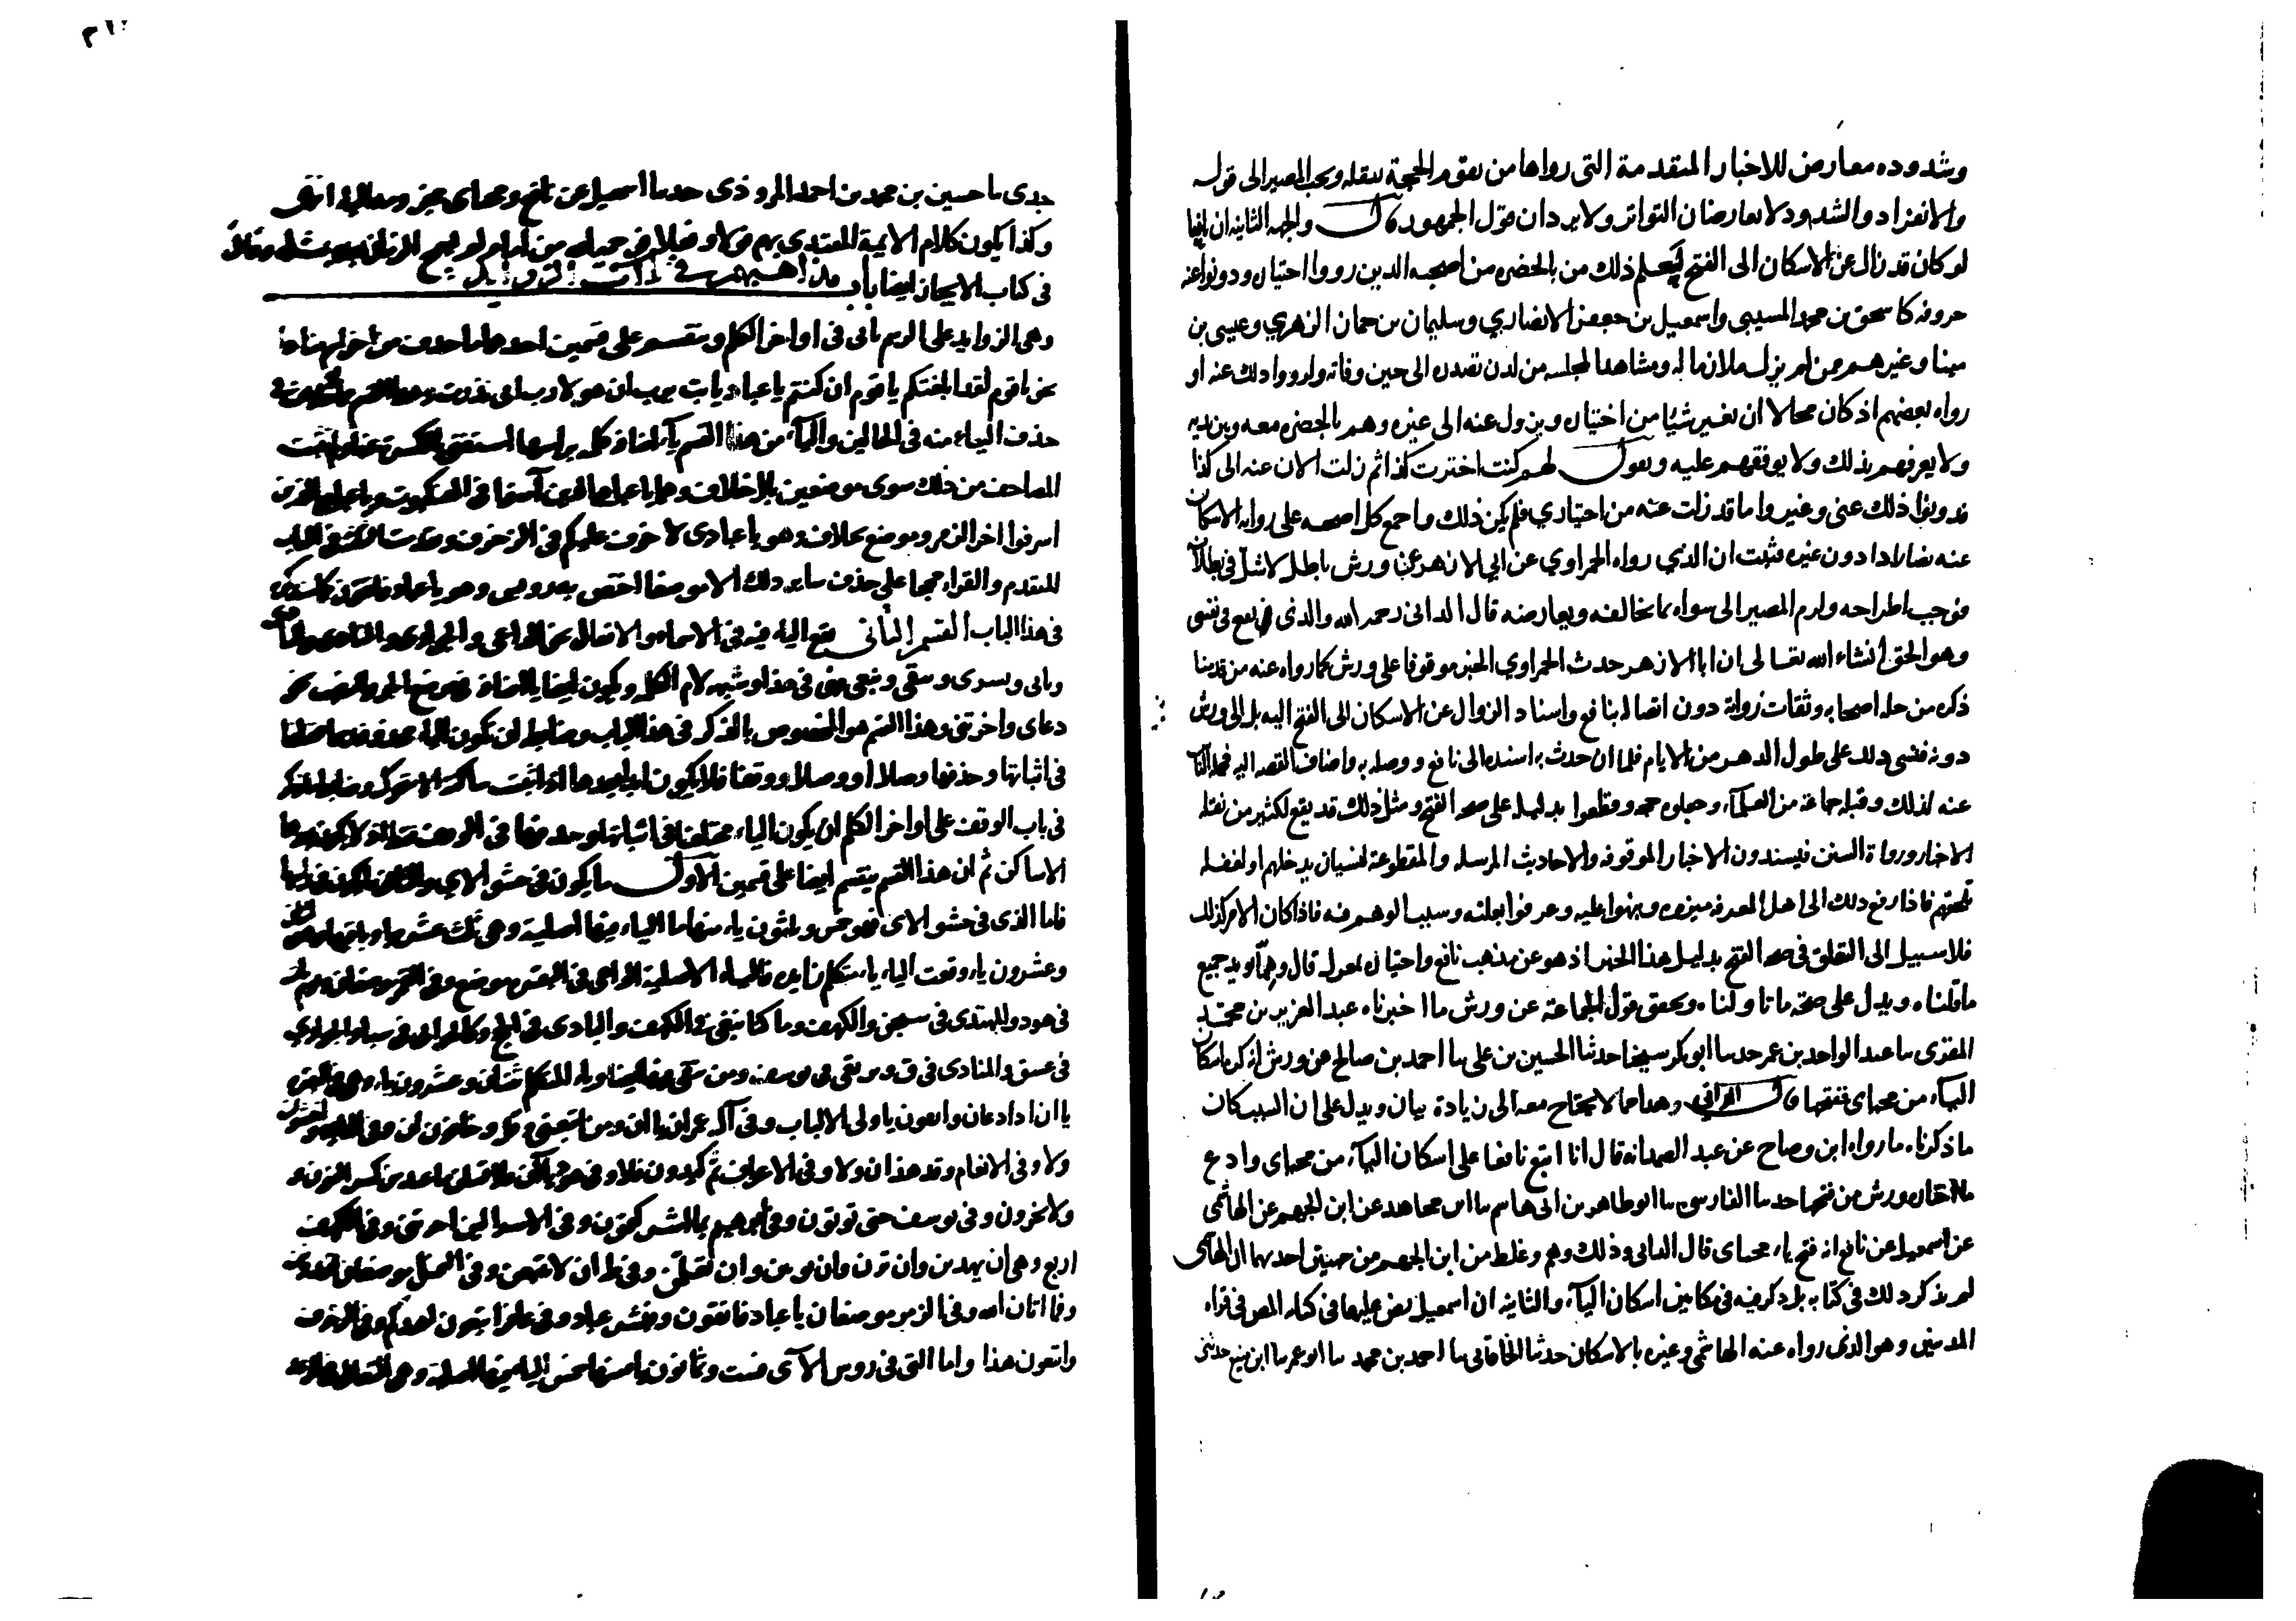 وشذوذه معارض للاخبار المتقدمة التى رواها من تقوم الحجة بنقله ويجب المصير الى قوله
والانفراد والشذوذ لا يعارضان التواتر ولا يردان قول الجمهور قال والجهة الثانية ان نافعا
لو كان قد زال عن الاسكان الى الفتح ليعلم ذلك من بالحضرة من اصحبه الذين رووا اختياره ودونوا عنه
حروفه كاسحق بن محمد المسيبى واسمعيل بن جعفر الانصاري وسليمان بن جماز الزهري وعيسى بن
مينا وغيرهم ممن لم يزل ملازما له ومشاهدا لمجلسه من لدن تصدره الى حين وفاته ولرووا ذلك عنه او
رواه بعضهم اذ كان محالا ان يغير شيئا من اختياره ويزول عنه الى غيره وهم بالحضرة معه وبين يديه
ولا يعرفهم بذلك ولا يوقفهم عليه ويقول لهم كنت اخترت كذا ثم زلت الان عنه الى كذا
فدونوا ذلك عنى وغيروا ما قد زلت عنه من اختياري فلم يكن ذلك واجمع كل اصحبه على رواية الاسكان
عنه نصا وادا دون غيره فثبت ان الذي رواه الحمراوي عن ابي الازهر عن ورش باطل لا شك فى بطلانه
فوجب اطراحه ولزم المصير الى سواه بما يخالفه ويعارضه قال الدانى رحمه الله والذى يقع فى نفسى
وهو الحق انشاء الله تعالى ان ابا الازهر حدث الحمراوي الخبر موقوفا على ورش كما رواه عنه من قدمنا
ذكره من جلة اصحابه وثقات رواته دون اتصاله بنافع واسناد الزوال عن الاسكان الى الفتح اليه بل الى ورش
دونه فنسى ذلك على طول الدهر من الايام فلما ان حدث به اسنده الى نافع ووصله به واضاف القصه اليه فحمله الناس
عنه لذلك وقبله جماعة من العلماء وجعلوه حجه وقطعوا بدليله على صحة الفتح ومثل ذلك قد يقع لكثير من نقلة
الاخبار ورواة السنن فيسندون الاخبار الموقوفه والاحاديث المرسله والمقطوعة لنسيان يدخلهم او لغفله
تلحقهم فاذا رفع ذلك الى اهل المعرفه ميزوه ونبهوا عليه وعرفوا بعلته وسبب الوهم فيه فاذا كان الامر كذلك
فلا سبيل الى التعلق فى صحة الفتح بدليل هذا الخبر اذ هو عن مذهب نافع واختياره بمعزل قال ومما يؤيد جميع
ما قلناه ويدل على صحة ما تاولناه ويحقق قول الجماعة عن ورش ما اخبرناه عبد العزيز بن محمد
المقرى نا عبد الواحد بن عمر حدثنا ابو بكر شيخنا حدثنا الحسين بن على نا احمد بن صالح عن ورش انه كره اسكان
الياء من محياى ففتحها قال الدانى وهذا مما لا يحتاج معه الى زيادة بيان ويدل على ان السبب كان
ما ذكرناه ما رواه ابن وضاح عن عبد الصمد انه قال انا اتبع نافعا على اسكان الياء من محياى وادع
ما اختاره ورش من فتحها حدثنا الفارسى نا ابو طاهر بن ابى هاشم نا ابن مجاهد عن ابن الجهم عن الهاشمى
عن اسمعيل عن نافع انه فتح ياء محياى قال الدانى وذلك وهم وغلط من ابن الجهم من جهتين احديهما ان الهاشمى
لم يذكر ذلك فى كتابه بل ذكر فيه فى مكانين اسكان الياء والثانيه ان اسمعيل نص عليها فى كتابه المصنف فى قراءة
المدنيين وهو الذى رواه عنه الهاشمى وغيره بالاسكان حدثنا الخاقانى نا احمد بن محمد نا ابو عمر نا ابن منيع حدثنى
جدى نا حسين بن محمد بن احمد المروذى حدثنا اسمعيل عن نافع ومحياى مجزومة الياء انتهى
وكذا يكون كلام الائمة المقتدى بهم قولا وفعلا
فى كتاب الايجاز ايضا باب مذاهبهم فى
وهى الزوايد على الرسم تاتى فى اواخر الكلم وتنقسم على قسمين احدهما ما حذف من اخر اسم منادى
نحو ياقوم لقد ابلغتكم ياقوم ان كنتم ياعباد ياابت يرب ان هؤلاء رب انى نذرت وهذا القسم
حذف الياء منه فى الحالين والياء من هذا القسم ياء اضافة كلمة براسها استغنى بالكسرة عنها ولم يثبت
المصاحف من ذلك سوى موضعين بلا خلاف وهما ياعبادى الذين آمنوا فى العنكبوت وياعبادى الذين
اسرفوا اخر الزمر وموضع بخلاف وهو ياعبادى لا خوف عليكم فى الزخرف
للمتقدم والقراء مجمعون على حذف ساير ذلك الا موضعا اختص به رويس وهو ياعباد فاتقون
فى هذا الباب القسم الثانى تقع الياء فيه فى الاسماء والافعال نحو الداعى والجوارى والمنادى
وياتى ويسرى ويتقى ونبغى فهى فى هذا وشبهه لام الكلمة وتكون ايضا ياء اضافة فى موضع الجر والنصب نحو
دعاى واخرتنى وهذا القسم هو المخصوص بالذكر فى هذا الباب وضابطه ان تكون الياء محذوفة رسما مختلفا
فى اثباتها وحذفها وصلا او وصلا ووقفا فلا يكون ابدا بعدها اذا اثبتت ساكنة الا متحرك وضابط ما ذكر
فى باب الوقف على اواخر الكلم ان يكون الياء مختلفا فى اثباتها وحذفها فى الوقف فقط اذ لا يكون بعدها
الا ساكن ثم ان هذا القسم ينقسم ايضا على قسمين الاول ما يكون فى حشو الاي
فاما الذى فى حشو الاى فهو خمس وثلثون ياء منها ما الياء فيها اصلية وهى ثلث عشرة ياء
وعشرون ياء وقعت الياء ياء متكلم زايده فالياء الاصلية الداعى فى البقرة موضع وفى القمر موضعان
فى هود والمهتدى فى سبحن والكهف وما كنا نبغى فى الكهف والبادى فى الحج وكالجوابى فى سبأ والجوارى
فى عسق والمنادى فى ق ونرتعى فى يوسف ومن يتقى فيها ايضا وياء المتكلم ثنتان وعشرون ياء وهى فى البقرة
اذا دعان واتقون ياولى الالباب وفى آل عمران
ولا وفى الانعام وقد هدان ولا وفى الاعراف ثم كيدون فلا وفى هود
ولا تخزون وفى يوسف حتى توتون وفى ابرهيم بما اشركتمون وفى الاسراء لئن اخرتنى وفى الكهف
اربع وهى ان يهدين وان ترن وان يوتين وان تعلمن وفى طه ان لا تتبعن وفى النمل موضعان اتمدونن
وفما اتان الله وفى الزمر موضعان ياعباد فاتقون وفبشر عباد وفى غافر اتبعون اهدكم وفى الزخرف
واتبعون هذا واما التى فى روس الآى فست وثمانون ياء منها خمس